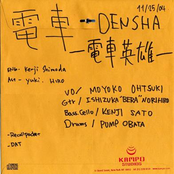 電車 DENSHA 11/25/04
—電車英雄—
Dir. Kenji Shimeda
yuki. Hiro
VO/ MOYOKO OHTSUKI
Gtr/ ISHIZUKA "BERA" NORIHIRO
Bass. Cello/ KENJI SATO
Drums/ PUMP OBATA
DAT
KAMPO